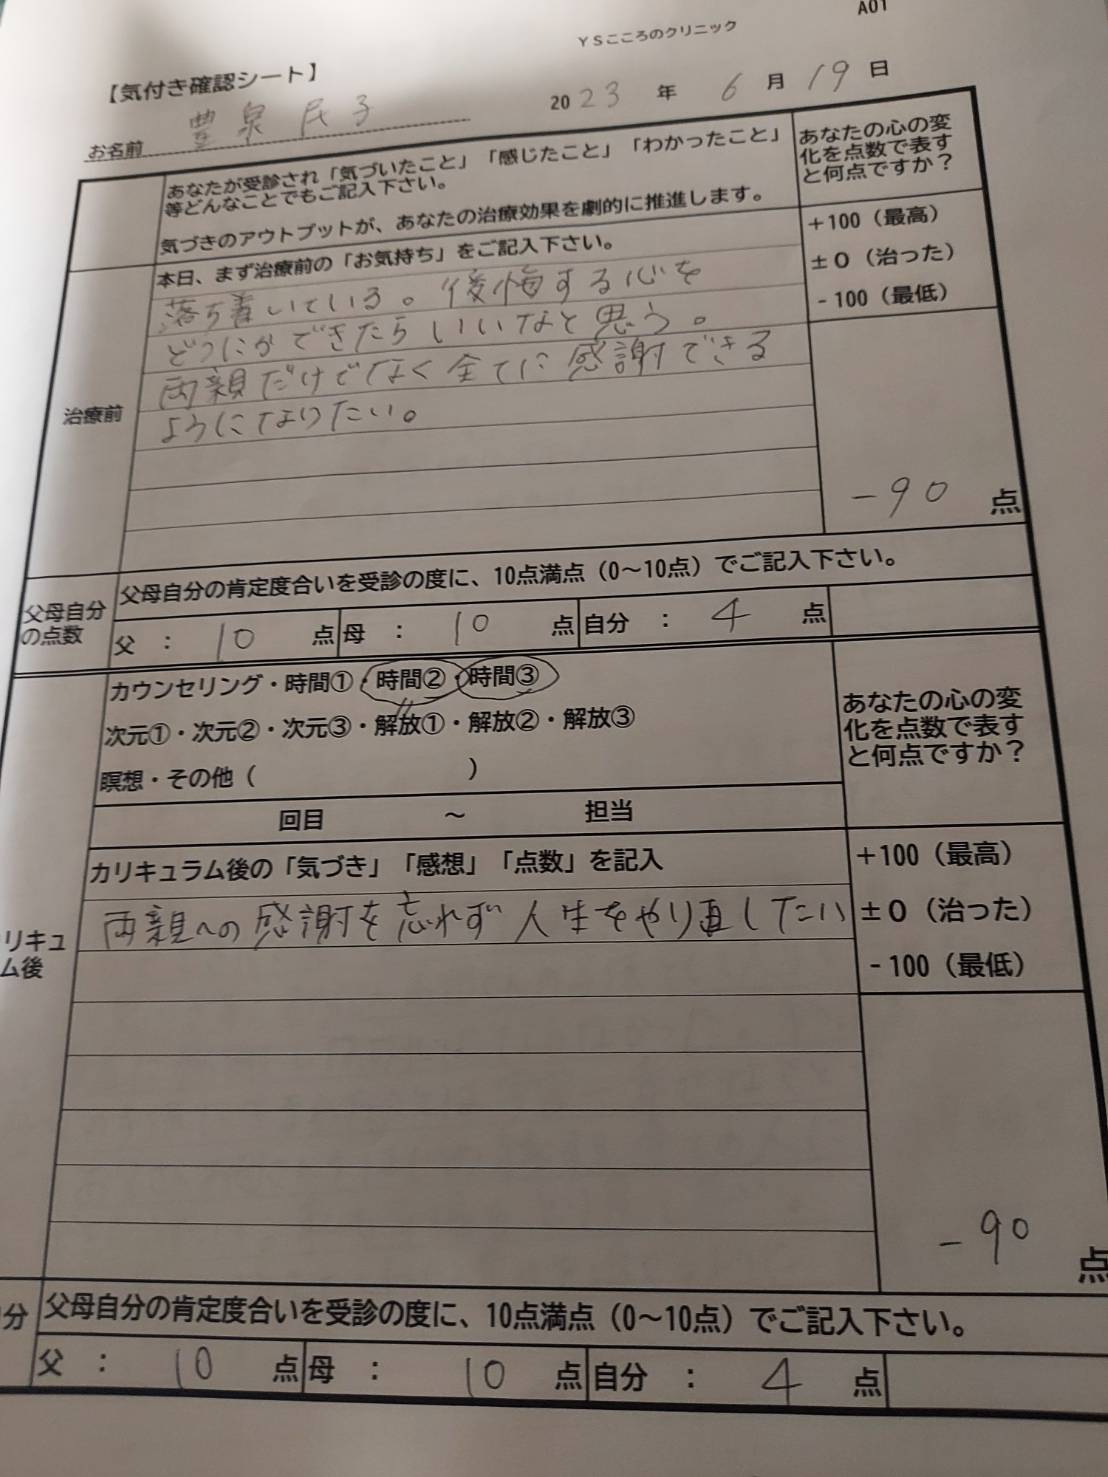 A01
YSこころのクリニック
【気付き確認シート】
2023年 6月19日
お名前 豊泉民子
あなたが受診され「気づいたこと」「感じたこと」「わかったこと」
等どんなことでもご記入下さい。
気づきのアウトプットが、あなたの治療効果を劇的に推進します。
あなたの心の変
化を点数で表す
と何点ですか？
+100（最高）
±0（治った）
-100（最低）
治療前
本日、まず治療前の「お気持ち」をご記入下さい。
落ち着いている。後悔する心を
どうにかできたらいいなと思う。
両親だけでなく全てに感謝できる
ようになりたい。
-90 点
父母自分
の点数
父母自分の肯定度合いを受診の度に、10点満点（0～10点）でご記入下さい。
父：10点 母：10点 自分：4点
カウンセリング・時間①・時間②・時間③
次元①・次元②・次元③・解放①・解放②・解放③
瞑想・その他（ ）
回目 ～ 担当
あなたの心の変
化を点数で表す
と何点ですか？
リキュ
ム後
カリキュラム後の「気づき」「感想」「点数」を記入
両親への感謝を忘れず人生をやり直したい
+100（最高）
±0（治った）
-100（最低）
-90 点
分
父母自分の肯定度合いを受診の度に、10点満点（0～10点）でご記入下さい。
父：10点 母：10点 自分：4点